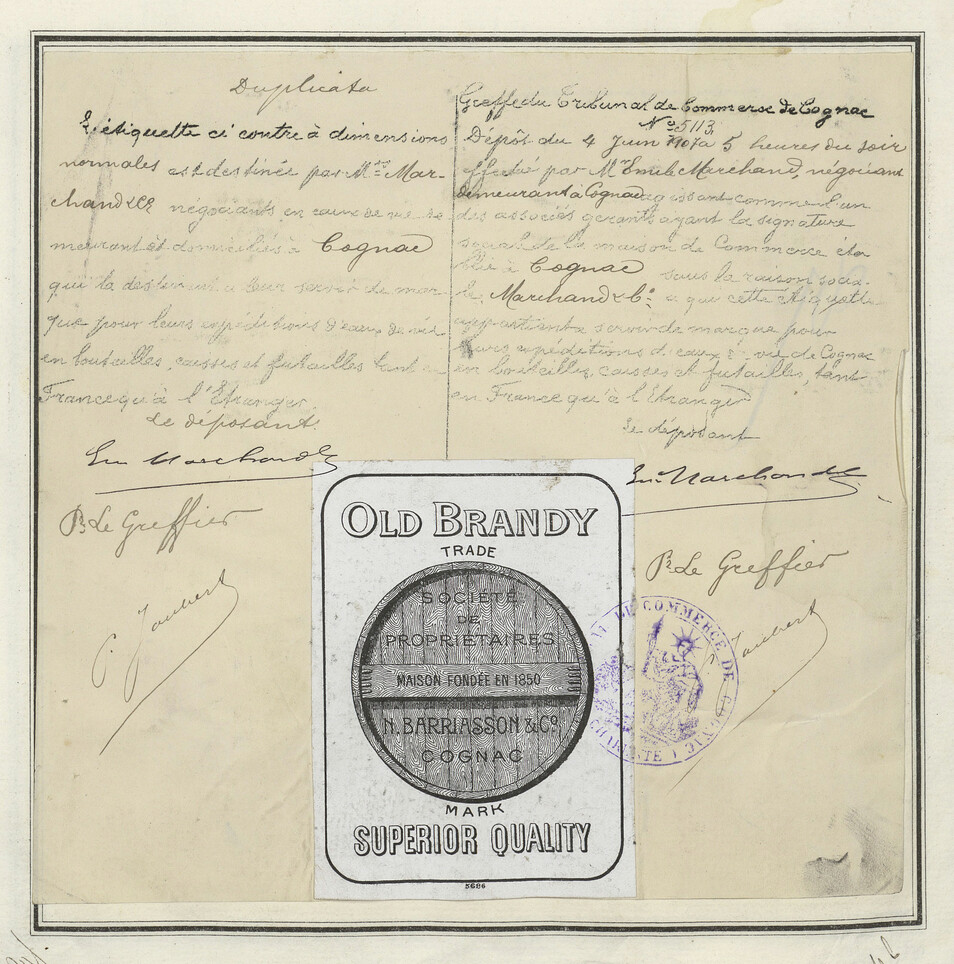 Duplicata
L'étiquette ci contre à dimensions
normales est destinée par Mrs Mar-
chand & Co négociants en eaux de vie de
meurant et domiciliés à Cognac
qui la destinent à leur servir de mar-
que pour leurs expéditions d'eaux de vie
en bouteilles, caisses et futailles tant en
France qu'à l'Etranger.
Le déposant
Em Marchand
Pr Le Greffier
P. Joubert
Greffe du Tribunal de Commerce de Cognac
No 5113
Dépôt du 4 Juin 1907 à 5 heures du soir
effectué par Mr Emile Marchand, négociant
demeurant à Cognac agissant comme l'un
des associés gérants ayant la signature
sociale de la maison de Commerce éta
blie à Cognac sous la raison socia-
le Marchand & Co a qui cette étiquette
appartient & servir de marque pour
leurs expéditions d'eaux de vie de Cognac
en bouteilles, caisses et futailles, tant
en France qu'à l'Etranger
Le déposant
Em Marchand
Pr Le Greffier
Joubert
OLD BRANDY
TRADE
SOCIÉTÉ
DE
PROPRIÉTAIRES
MAISON FONDÉE EN 1850
N. BARRIASSON & Co
COGNAC
MARK
SUPERIOR QUALITY
5686
DE COMMERCE DE COGNAC